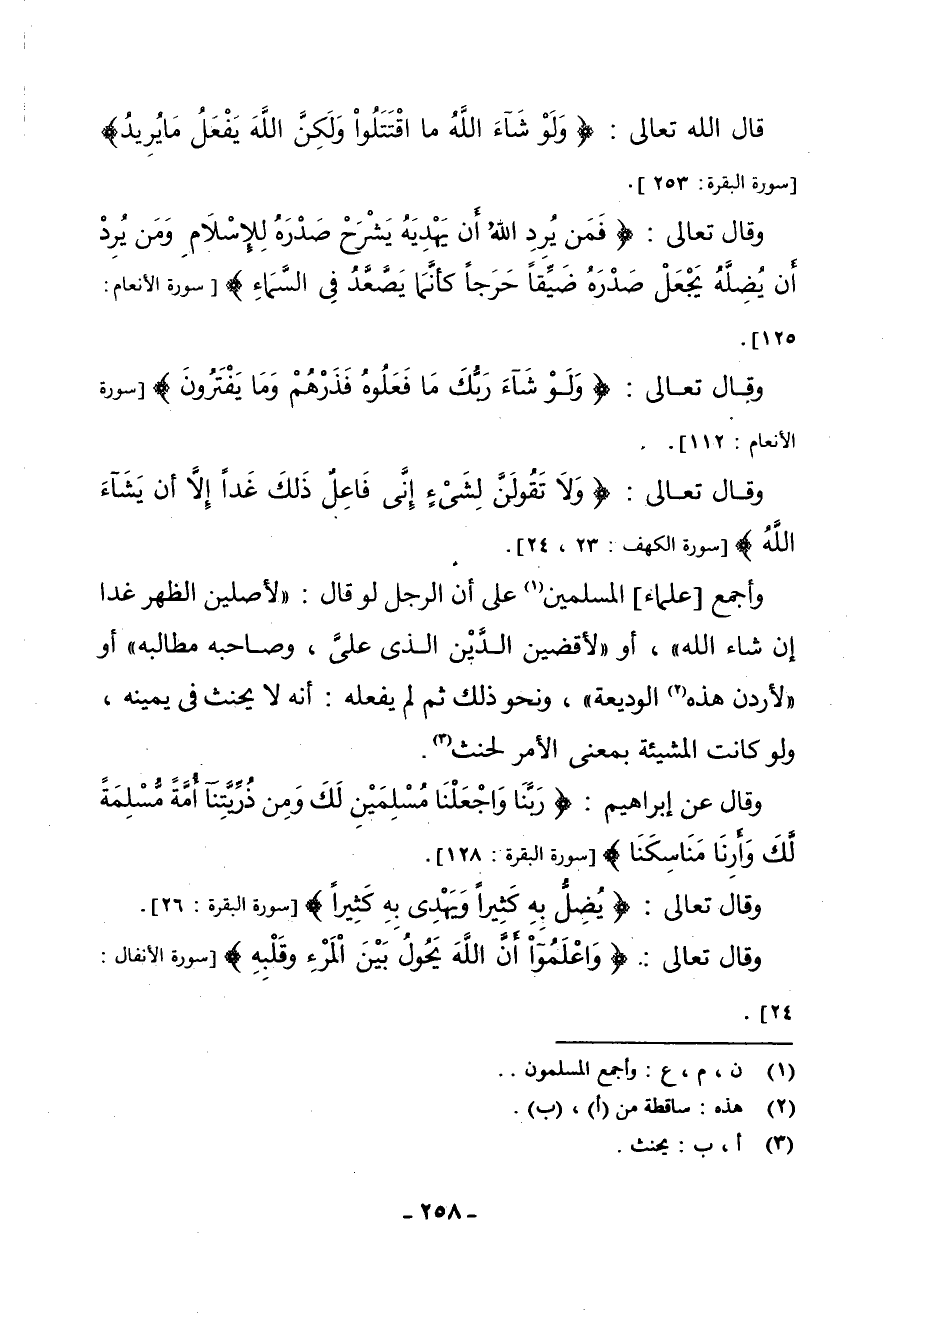 قال الله تعالى : ﴿ وَلَوْ شَآءَ اللَّهُ ما اقْتَتَلُواْ وَلَكِنَّ اللَّهَ يَفْعَلُ مَايُرِيدُ﴾
[سورة البقرة: ٢٥٣ ].
وقال تعالى : ﴿ فَمَن يُرِدِ اللهُ أَن يَهْدِيَهُ يَشْرَحْ صَدْرَهُ لِلإِسْلَامِ وَمَن يُرِدْ
أَن يُضِلَّهُ يَجْعَلْ صَدْرَهُ ضَيِّقاً حَرَجاً كأنَّمَا يَصَّعَّدُ فِى السَّمَاءِ ﴾ [ سورة الأنعام:
١٢٥].
وقال تعالى : ﴿ وَلَوْ شَآءَ رَبُّكَ مَا فَعَلُوهُ فَذَرْهُمْ وَمَا يَفْتَرُونَ ﴾ [سورة
الأنعام : ١١٢].
وقال تعالى : ﴿ وَلَا تَقُولَنَّ لِشَىْءٍ إِنِّى فَاعِلٌ ذَلكَ غَداً إِلَّا أن يَشَآءَ
اللَّهُ ﴾ [سورة الكهف : ٢٣ ، ٢٤].
وأجمع [علماء] المسلمين(١) على أن الرجل لو قال : «لأصلين الظهر غدا
إن شاء الله» ، أو «لأقضين الدَّيْن الذى علىَّ ، وصاحبه مطالبه» أو
«لأردن هذه(٢) الوديعة» ، ونحو ذلك ثم لم يفعله : أنه لا يحنث فى يمينه ،
ولو كانت المشيئة بمعنى الأمر لحنث(٣).
وقال عن إبراهيم : ﴿ رَبَّنَا وَاجْعَلْنَا مُسْلِمَيْنِ لَكَ وَمِن ذُرِّيَّتِنَآ أُمَّةً مُّسْلِمَةً
لَّكَ وَأَرِنَا مَنَاسِكَنَا ﴾ [سورة البقرة : ١٢٨].
وقال تعالى : ﴿ يُضِلُّ بِهِ كَثِيراً وَيَهْدِى بِهِ كَثِيراً ﴾ [سورة البقرة : ٢٦].
وقال تعالى : ﴿ وَاعْلَمُوآْ أَنَّ اللَّهَ يَحُولُ بَيْنَ الْمَرْءِ وقَلْبِهِ ﴾ [سورة الأنفال :
٢٤] .
(١) ن ، م ، ع : وأجمع المسلمون . .
(٢) هذه : ساقطة من (أ) ، (ب) .
(٣) أ ، ب : يحنث .
ـ ٢٥٨ ـ